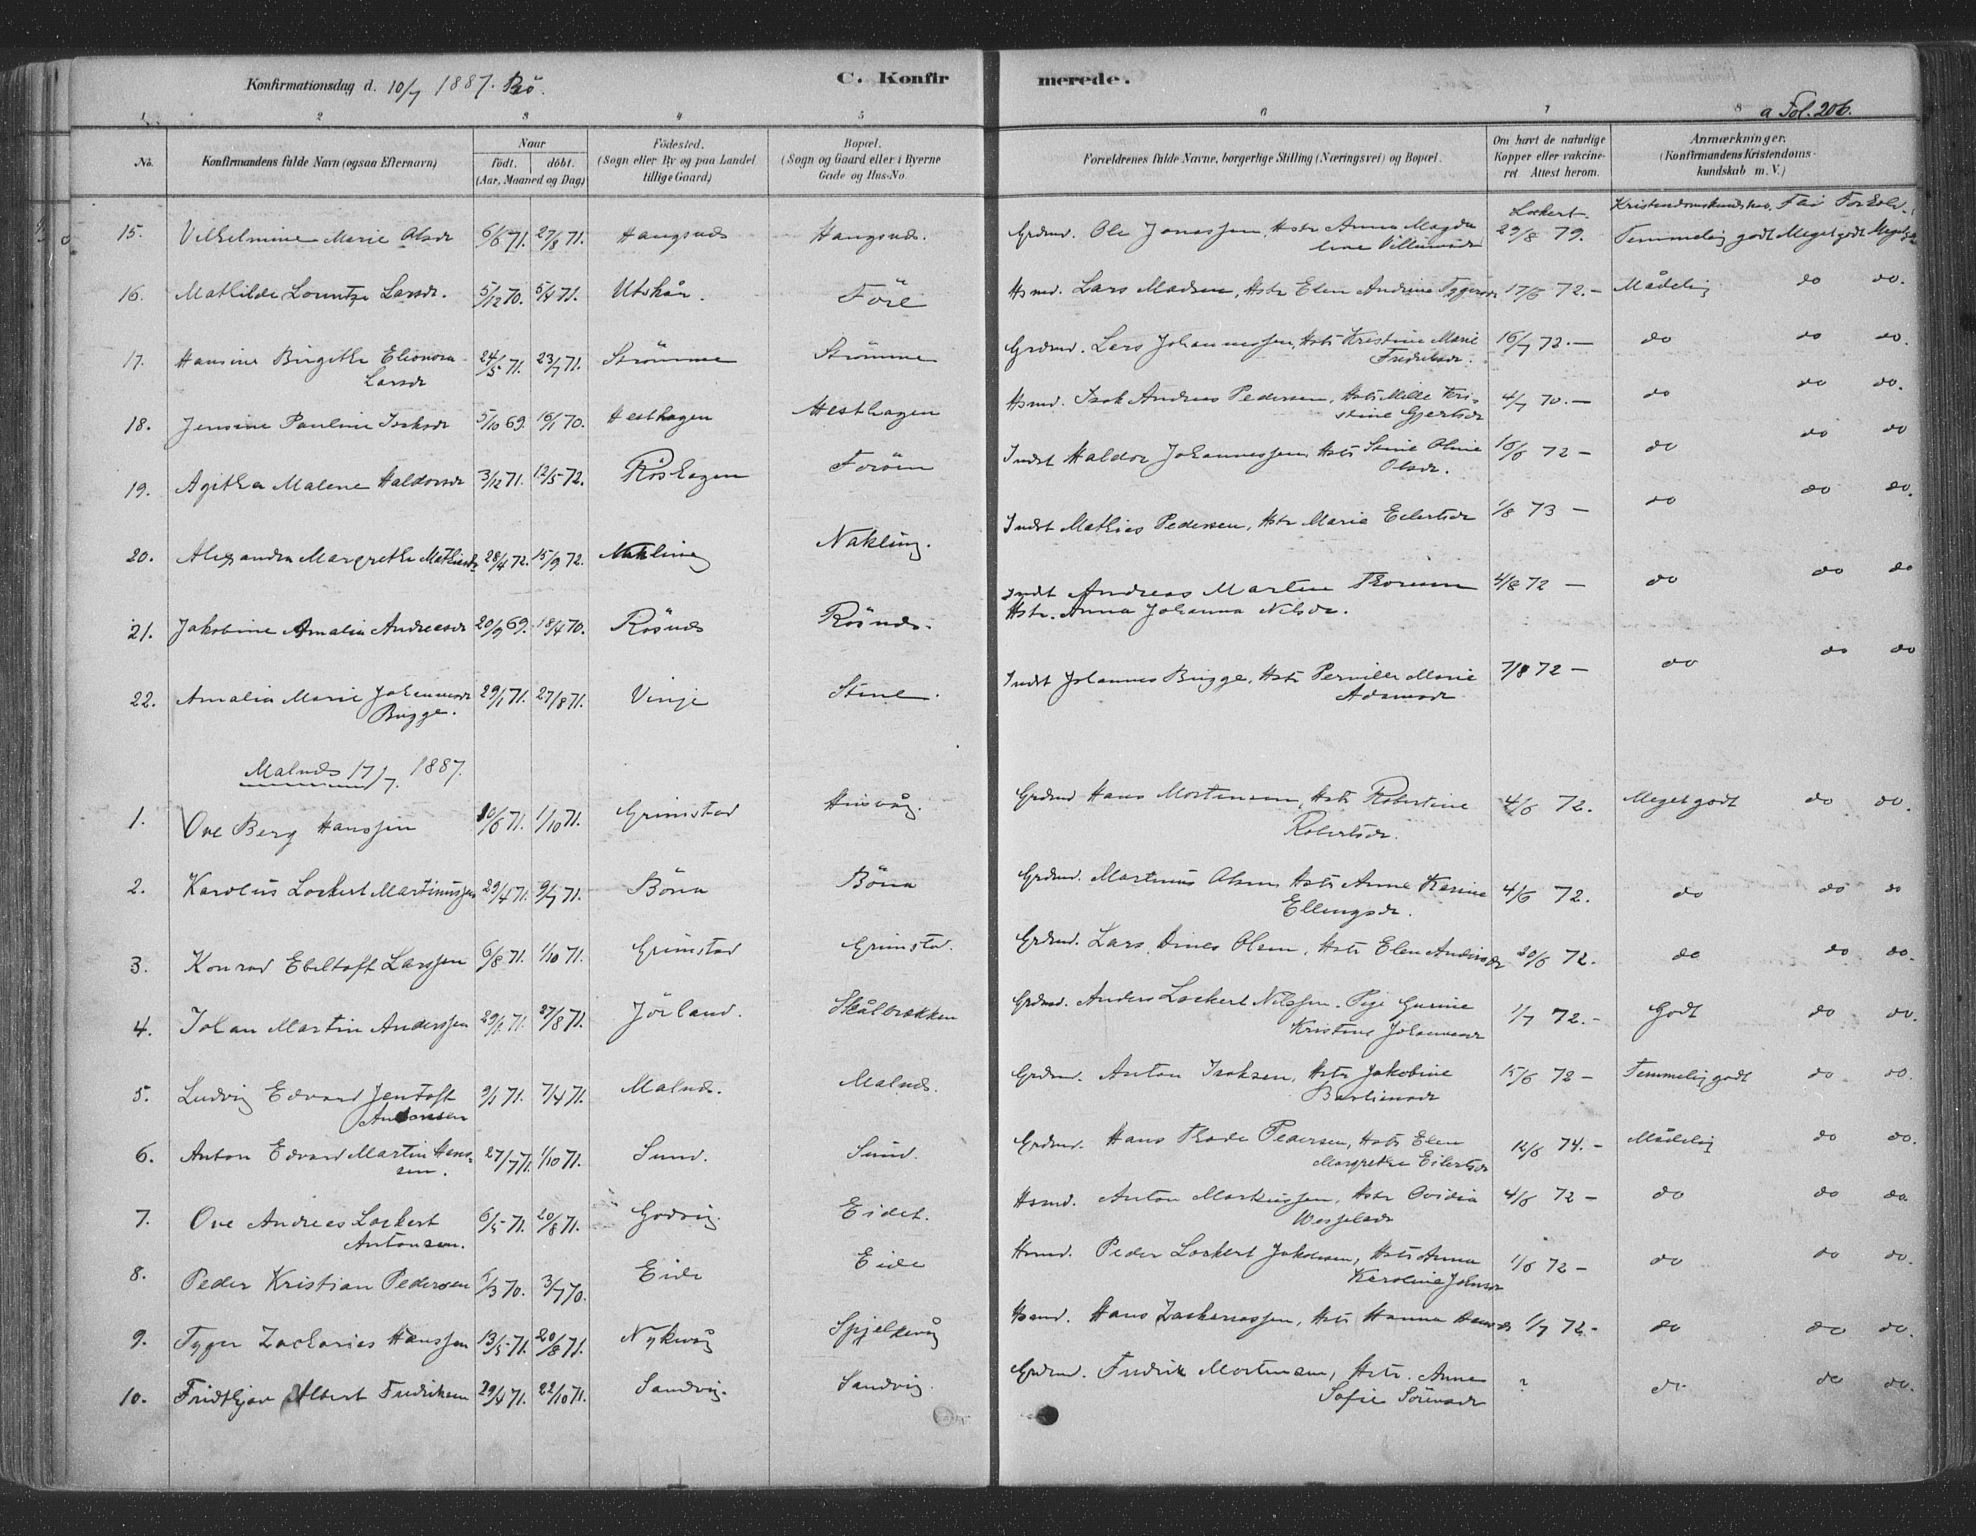 Konfirmationsdag d. 10/7 1887. Bö.
C. Konfirmerede.
a Fol. 206.
1. 2 3 4 5 6 7 8
No.
Konfirmandens fulde Navn (ogsaa Efternavn)
Naar
födt. döbt.
(Aar, Maaned og Dag)
Födested.
(Sogn eller By og paa Landet
tillige Gaard)
Bopæl.
(Sogn og Gaard eller i Byerne
Gade og Hus-No.
Forældrenes fulde Navne, borgerlige Stilling (Næringsvei) og Bopæl.
Om havt de naturlige
Kopper eller vakcine-
ret Attest herom.
Anmærkninger.
(Konfirmandens Kristendoms-
kundskab m. V.)
Lockert Kristendomskundskab. Flid
15. Vilhelmine Marie Olsdr 6/6 71. 27/8 71. Haugsnes Haugsnes. Grdmd. Ole Jonassen, Hstr Anna Magda
lena 29/8 79. Temmelig godt Meget godt
16. Mathilde Lorentze Larsdr. 5/12 70. 5/4 71. Utskår. Före Hsmd. Lars Madsen, Hstr Elen Andrine Tygersdr 17/6 72.- Mådelig do do.
17. Hansine Birgithe Elionora 24/5 71. 23/7 71. Strömme Strömme Grdmd. Lars Johannessen, Hstr Kristine Marie 16/7 72.- do do do.
Larsdr Fredriksdr.
18. Jensine Pauline Isaksdr 5/10 69. 16/1 70. Hesthagen Hesthagen Hsmd. Isak Andreas Pedersen, Hstr Mille Kri-
stine Gjertsdr 4/7 70.- do do do.
19. Agitha Malene Haldorsdr 3/12 71. 12/5 72. Röshagen Foröen Indst Haldor Johannessen, Hstr Stine Oline
Olsdr. 16/6 72 - do do do
20. Alexandra Margrethe Mathisdr 28/4 72. 15/9 72. Nakling Nakling. Indst Mathias Pedersen, Hstr Marie Eilertsdr 1/8 73 - do do do.
21. Jakobine Amalia Andreasdr 20/9 69. 18/4 70. Rösnes Rösnes. Indst Andreas Martin Thoresen 4/8 72 - do do do
Hstr. Anna Johanna Nilsdr.
22. Amalia Marie Johannesdr 29/1 71. 27/8 71. Vinje Stene. Indst Johannes Brygge, Hstr Pernille Marie 7/8 72 - do do do
Brygge. Adamsdr
Malnes 17/7 1887.
1. Ove Berg Hanssen 10/6 71. 1/10 71. Grimstad Husvåg. Grdmd Hans Mortensen, Hstr Robertine 4/6 72. Meget godt do do.
Robertsdr.
2. Karolus Lockert Martinussen 29/4 71. 9/7 71. Böna Böna Grdmd. Martinus Olsen, Hstr Anne Karine 4/6 72. do do do
Ellingsdr.
3. Konrad Ebeltoft Larssen 6/8 71. 1/10 71. Grimstad Grimstad. Grdmd. Lars Dines Olsen, Hstr Elen Andersdr 20/6 72. do do do.
4. Johan Martin Anderssen 29/1 71. 27/8 71. Jörland. Skålbrækken Grdmd. Anders Lockert Nilssen. Pige Gurine 1/7 72.- Godt do do.
Kristine Johannesdr
5. Ludvig Edvard Jentoft 9/1 71. 7/4 71. Malnes. Malnes. Grdmd. Anton Isaksen, Hstr Jakobine 15/6 72 - Temmelig godt do do.
Antonsen
6. Anton Edvard Martin Hans-
sen. 27/7 71. 1/10 71. Sund. Sund. Grdmd. Hans Thode Pedersen, Hstr Elen 12/6 74.- Mådelig do do.
Margrethe Eilertsdr
7. Ove Andreas Lockert 6/5 71. 20/8 71. Godvig. Eidet. Hsmd. Anton Markussen, Hstr Ovidia 4/6 72 - do do do.
Antonsen. Wesselsdr
8. Peder Kristian Pedersen 1/3 70. 3/7 70. Eide Eide Hsmd. Peder Lockert Jakobsen, Hstr Anna 1/6 72 - do do do.
Karoline Johnsdr
9. Tyger Zackarias Hanssen 13/5 71. 20/8 71. Nykvåg Spjelkvåg Hsmd. Hans Zackariassen, Hstr Hanna Hansdr 1/7 72.- do do do.
10. Fridthjov Albert Fredriksen 29/4 71. 22/10 71. Sandvig. Sandvig. Grdmd. Fredrik Mortensen, Hstr. Anne ? do. do do.
Sofie Sörensdr